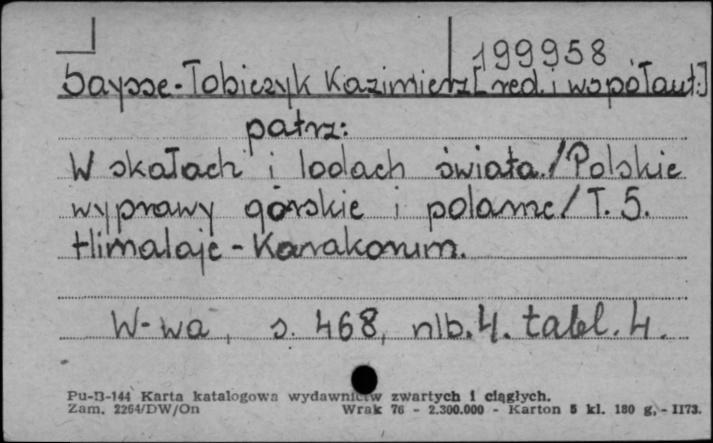 199958
Saysse-Tobiczyk Kazimierz [red. i współaut.]
patrz:
W skałach i lodach świata./Polskie
wyprawy górskie i polarne/T. 5.
Himalaje - Karakorum.
W-wa, s. 468, nlb. 4. tabl. 4.
Pu-B-144 Karta katalogowa wydawnictw zwartych i ciągłych.
Zam. 2264/DW/On Wrak 76 - 2.300.000 - Karton 5 kl. 180 g, - II73.